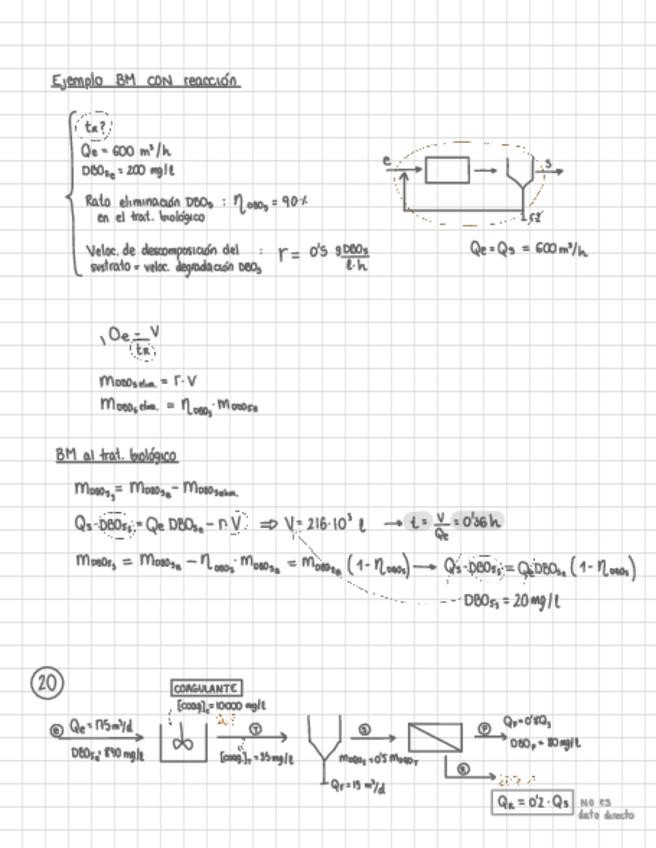 Ejemplo BM CON reacción
tR?
Qe = 600 m³/h
DBO5e = 200 mg/l
Rato eliminación DBO5 : ηDBO5 = 90%
en el trat. biológico
Veloc. de descomposición del : r = 0'5 gDBO5/l·h
sustrato = veloc. degradación DBO5
e
s
Qe = Qs = 600 m³/h
Qe = V/tR
mDBO5elim. = r·V
mDBO5elim. = ηDBO5·mDBO5e
BM al trat. biológico
mDBO5s = mDBO5e - mDBO5elim.
Qs·DBO5s = Qe DBO5e - r·V ⇒ V = 216·10³ l → t = V/Qe = 0'36 h
mDBO5s = mDBO5e - ηDBO5·mDBO5e = mDBO5e (1-ηDBO5) → Qs·DBO5s = Qe DBO5e (1-ηDBO5)
DBO5s = 20 mg/l
20
COAGULANTE
[coag]c = 10000 mg/l
e Qe = 175 m³/d
DBO5e = 840 mg/l
T
[coag]T = 35 mg/l
Qf = 15 m³/d
S
mDBO5S = 0'5 mDBO5T
P
QP = 0'8QS
DBO5P = 80 mg/l
R
QR = 0'2·QS
NO es
dato directo